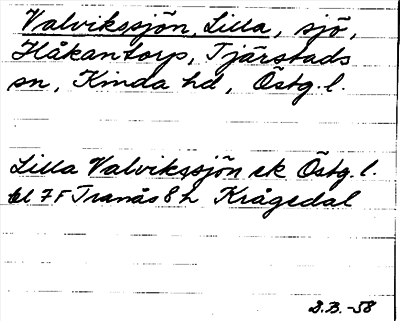 Valvikssjön, Lilla, sjö,
Håkantorp, Tjärstads
sn, Kinda hd, Östg. l.
Lilla Valvikssjön ek Östg. l.
bl 7F Tranås 8h Krågedal
D.B. -58